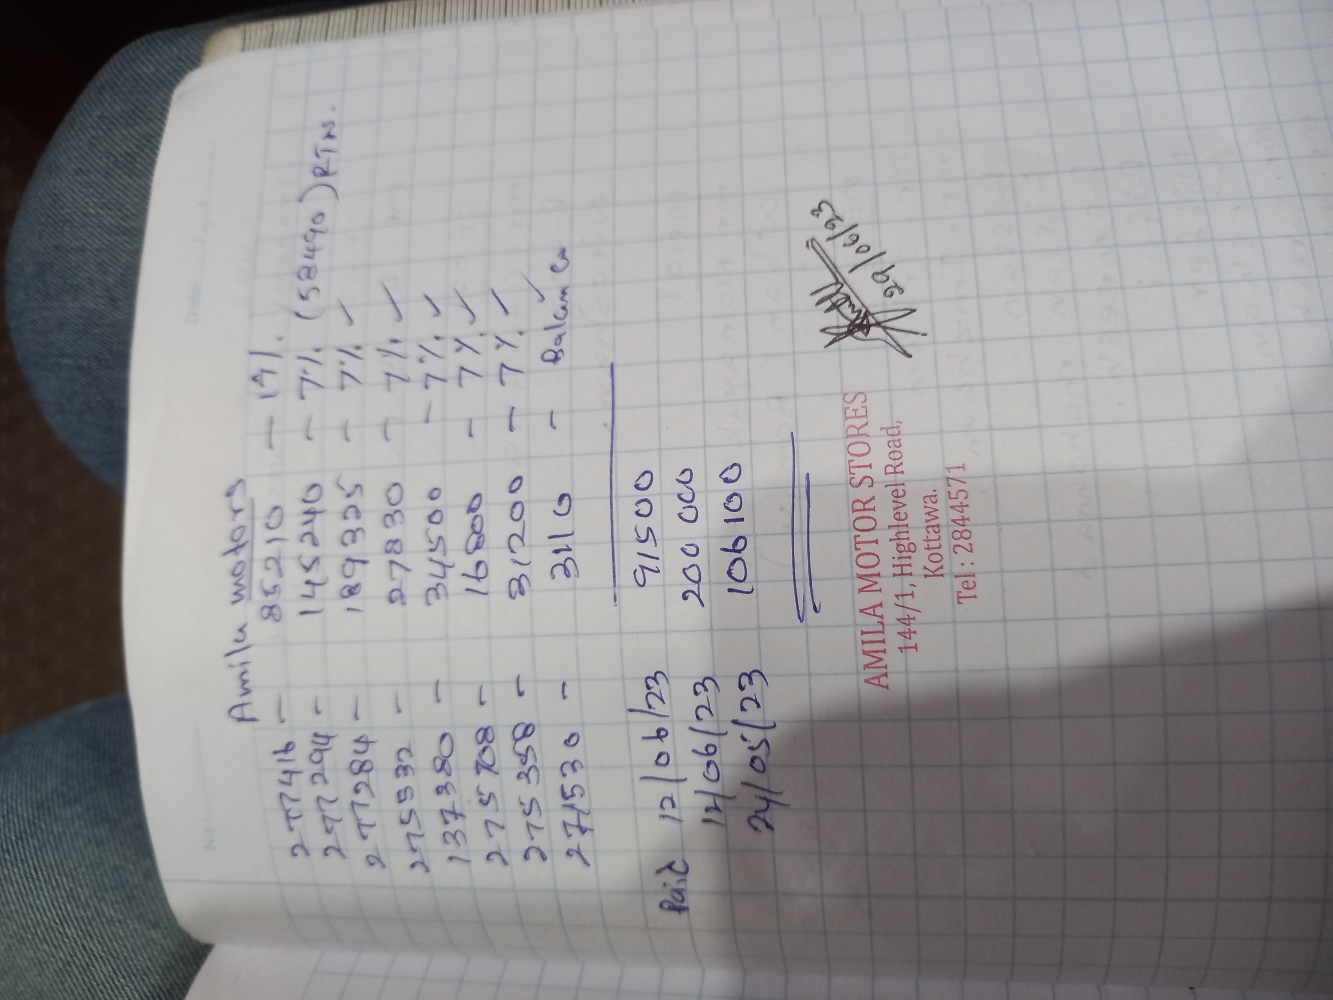 Amila motors
277416 - 85210 - 14%.
277294 - 145240 - 7% (58490) RTN.
277284 - 189325 - 7% ✓
275532 - 27830 - 7% ✓
137380 - 34500 - 7% ✓
275708 - 16800 - 7% ✓
275358 - 31200 - 7% ✓
271530 - 3110 - ✓
Paid 12/06/23 91500
12/06/23 200 000
24/05/23 106100
29/06/23
AMILA MOTOR STORES
144/1, Highlevel Road,
Kottawa.
Tel : 2844571